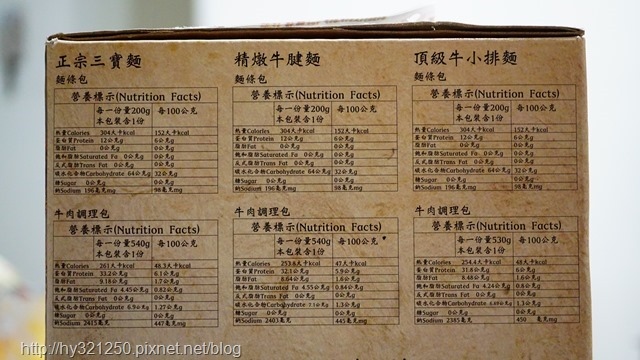 正宗三寶麵
麵條包
營養標示(Nutrition Facts)
每一份量200g 每100公克
本包裝含1份
熱量Calories 304大卡kcal 152大卡kcal
蛋白質Protein 12公克g 6公克g
脂肪Fat 0公克g 0公克g
飽和脂肪Saturated Fa 0公克g 0公克g
反式脂肪Trans Fat 0公克g 0公克g
碳水化合物Carbohydrate 64公克g 32公克g
糖Sugar 0公克g 0公克g
鈉Sodium 196毫克mg 98毫克mg
牛肉調理包
營養標示(Nutrition Facts)
每一份量540g 每100公克
本包裝含1份
熱量Calories 261大卡kcal 48.3大卡kcal
蛋白質Protein 33.2公克g 6.1公克g
脂肪Fat 9.18公克g 1.7公克g
飽和脂肪Saturated Fa 4.45公克g 0.82公克g
反式脂肪Trans Fat 0公克g 0公克g
碳水化合物Carbohydrate 6.9公克g 1.27公克g
糖Sugar 0公克g 0公克g
鈉Sodium 2415毫克 447毫克mg
精燉牛腱麵
麵條包
營養標示(Nutrition Facts)
每一份量200g 每100公克
本包裝含1份
熱量Calories 304大卡kcal 152大卡kcal
蛋白質Protein 12公克g 6公克g
脂肪Fat 0公克g 0公克g
飽和脂肪Saturated Fa 0公克g 0公克g
反式脂肪Trans Fat 0公克g 0公克g
碳水化合物Carbohydrate 64公克g 32公克g
糖Sugar 0公克g 0公克g
鈉Sodium 196毫克mg 98毫克mg
牛肉調理包
營養標示(Nutrition Facts)
每一份量540g 每100公克
本包裝含1份
熱量Calories 253.8大卡kcal 47大卡kcal
蛋白質Protein 32.1公克g 5.9公克g
脂肪Fat 8.64公克g 1.6公克g
飽和脂肪Saturated Fa 4.55公克g 0.84公克g
反式脂肪Trans Fat 0公克g 0公克g
碳水化合物Carbohydrate 1.3公克g
糖Sugar 0公克g 0公克g
鈉Sodium 2403毫克 445毫克mg
頂級牛小排麵
麵條包
營養標示(Nutrition Facts)
每一份量200g 每100公克
本包裝含1份
熱量Calories 304大卡kcal 152大卡kcal
蛋白質Protein 12公克g 6公克g
脂肪Fat 0公克g 0公克g
飽和脂肪Saturated Fa 0公克g 0公克g
反式脂肪Trans Fat 0公克g 0公克g
碳水化合物Carbohydrate 64公克g 32公克g
糖Sugar 0公克g 0公克g
鈉Sodium 196毫克mg 98毫克mg
牛肉調理包
營養標示(Nutrition Facts)
每一份量530g 每100公克
本包裝含1份
熱量Calories 254.4大卡kcal 48大卡kcal
蛋白質Protein 31.8公克g 6公克g
脂肪Fat 8.48公克g 1.6公克g
飽和脂肪Saturated Fa 4.24公克g 0.8公克g
反式脂肪Trans Fat 0公克g 0公克g
碳水化合物Carbohydrate 1.3公克g
糖Sugar 0公克g 0公克g
鈉Sodium 2385毫克 450 毫克mg
http://hy321250.pixnet.net/blog